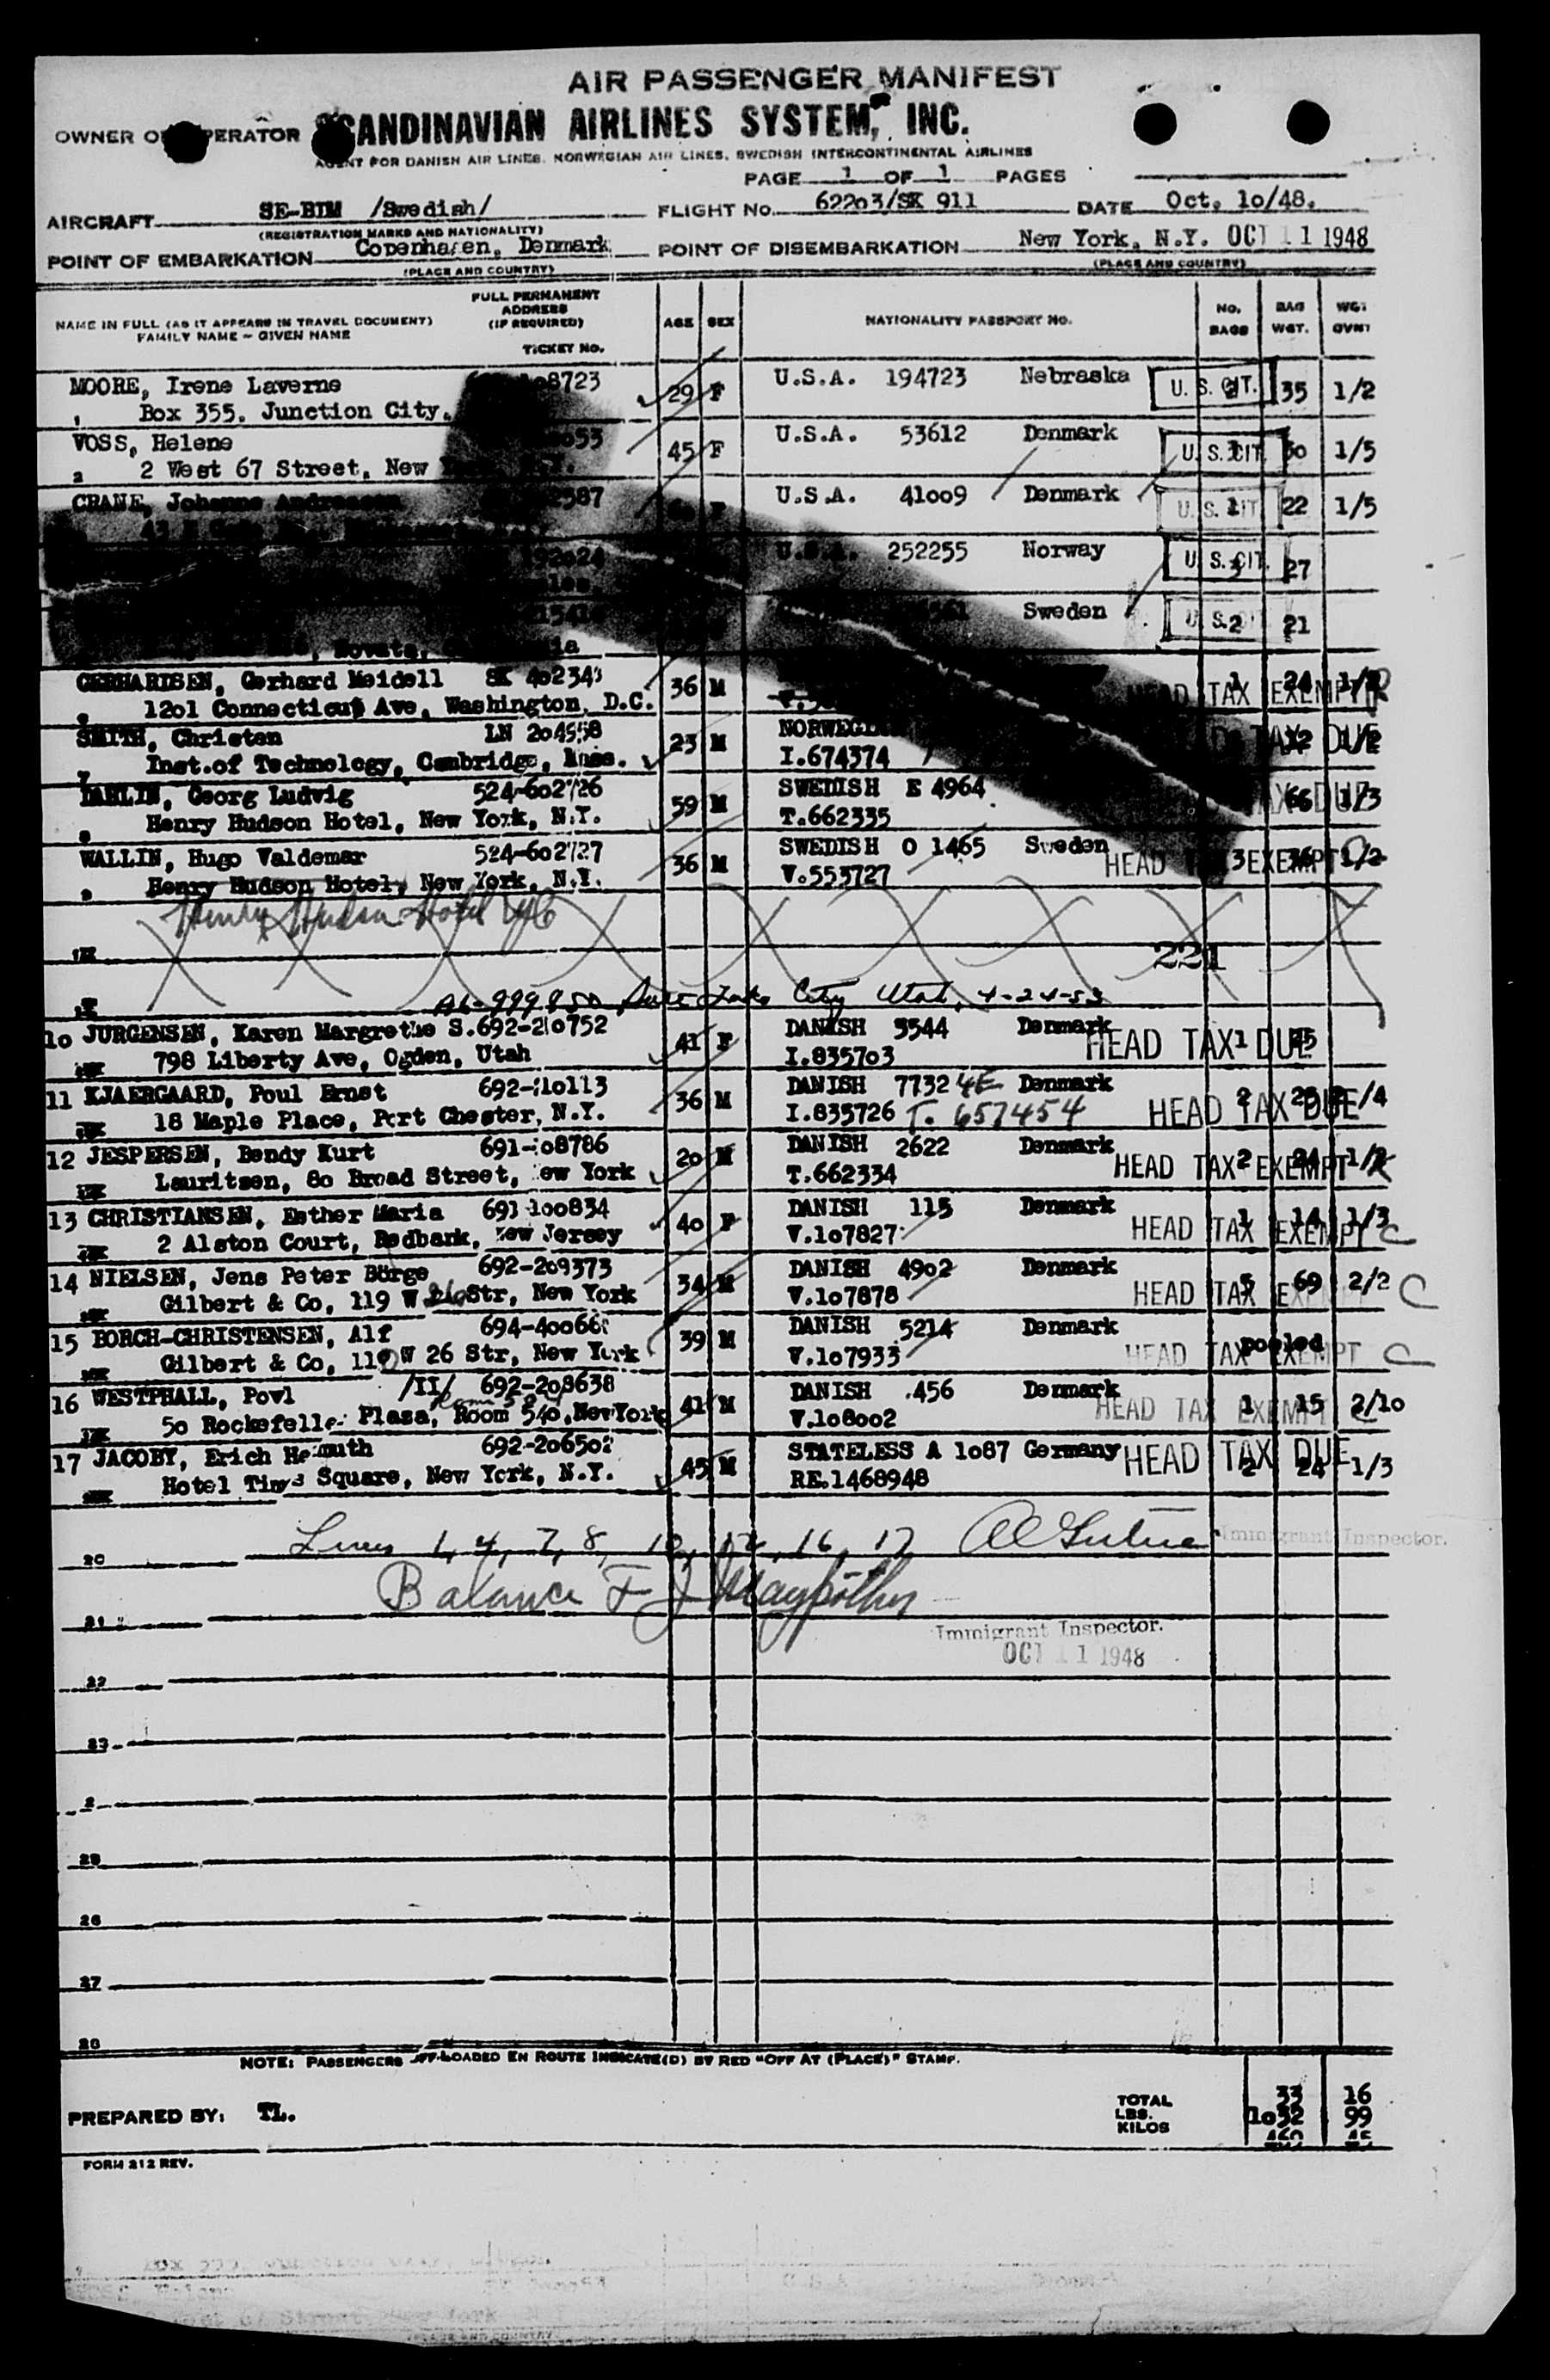 AIR PASSENGER MANIFEST
OWNER OPERATOR SCANDINAVIAN AIRLINES SYSTEM, INC.
AGENT FOR DANISH AIR LINES, NORWEGIAN AIR LINES, SWEDISH INTERCONTINENTAL AIRLINES
PAGE 1 OF 1 PAGES
AIRCRAFT SE-BIM /Swedish/ FLIGHT NO. 62203/SK 911 DATE Oct. 1o/48.
(REGISTRATION MARKS AND NATIONALITY)
POINT OF EMBARKATION Copenhagen, Denmark POINT OF DISEMBARKATION New York, N.Y. OCT 11 1948
(PLACE AND COUNTRY) (PLACE AND COUNTRY)
NAME IN FULL (AS IT APPEARS IN TRAVEL DOCUMENT) FAMILY NAME - GIVEN NAME FULL PERMANENT ADDRESS (IF REQUIRED) TICKET NO. AGE SEX NATIONALITY PASSPORT NO. NO. BAGS BAG WGT. WGT OVNT
MOORE, Irene Laverne 8723 29 F U.S.A. 194723 Nebraska U. S. CIT. 35 1/2
Box 355, Junction City,
VOSS, Helene o53 45 F U.S.A. 53612 Denmark U. S. CIT. 1/5
2 West 67 Street, New
CRANE, Johanne 2587 U.S.A. 41oo9 Denmark U. S. CIT 22 1/5
192o24 U.S.A. 252255 Norway U. S. CIT. 27
Sweden U. S. 2 21
GERHARDSEN, Gerhard Meidell SK 4o2343 36 M HEAD TAX EXEMPT 1 24
12o1 Connecticut Ave, Washington, D.C.
SMITH, Christen LN 2o4558 23 M NORWEGIAN TAX DUE
Inst.of Technology, Cambridge, Mass. I.674374
DAHLIN, Georg Ludvig 524-6o2726 59 M SWEDISH E 4964 TAX DUE 66 1/3
Henry Hudson Hotel, New York, N.Y. T.662335
WALLIN, Hugo Valdemar 524-6o2727 36 M SWEDISH O 1465 Sweden HEAD TAX EXEMPT 3 36 1/2
Henry Hudson Hotel, New York, N.Y. V.553727
Henry Hudson Hotel NYC
221
Salt Lake City Utah, 4-24-53
1o JURGENSEN, Karen Margrethe S.692-21o752 41 F DANISH 3544 Denmark HEAD TAX DUE 1 25
798 Liberty Ave, Ogden, Utah I.8357o3
11 KJAERGAARD, Poul Ernst 692-21o113 36 M DANISH 7732 4E Denmark HEAD TAX DUE 2
18 Maple Place, Port Chester, N.Y. I.835726 T. 657454
12 JESPERSEN, Bendy Kurt 691-1o8786 2o M DANISH 2622 Denmark HEAD TAX EXEMPT 2 24
Lauritzen, 8o Broad Street, New York T.662334
13 CHRISTIANSEN, Esther Maria 691-1oo834 4o F DANISH 115 Denmark HEAD TAX EXEMPT 1 14 1/3 C
2 Alston Court, Redbank, New Jersey V.1o7827
14 NIELSEN, Jens Peter Börge 692-2o9373 34 M DANISH 49o2 Denmark HEAD TAX 5 69 2/2 C
Gilbert & Co, 119 W 26 Str, New York V.1o7878
15 BORCH-CHRISTENSEN, Alf 694-4oo66 39 M DANISH 5214 Denmark HEAD TAX EXEMPT pooled C
Gilbert & Co, 119 W 26 Str, New York V.1o7933
16 WESTPHALL, Povl /II/ 692-2o8638 41 M DANISH 456 Denmark HEAD TAX EXEMPT 1 15 2/1o
5o Rockefeller Plasa, Room 54o, NewYork V.1o8oo2
17 JACOBY, Erich Helmuth 692-2o6502 45 M STATELESS A 1o87 Germany HEAD TAX DUE 2 24 1/3
Hotel Times Square, New York, N.Y. RE.1468948
20 Lines 1, 4, 7, 8, 10, 12, 16, 17 Immigrant Inspector.
Balance F J
21
Immigrant Inspector.
OCT 11 1948
22
23
25
26
27
28
NOTE: PASSENGERS OFF-LOADED EN ROUTE INDICATE(D) BY RED "OFF AT (PLACE)" STAMP.
PREPARED BY: TL. TOTAL 33 16
LBS. 1o32 99
KILOS 46o 45
FORM 212 REV.